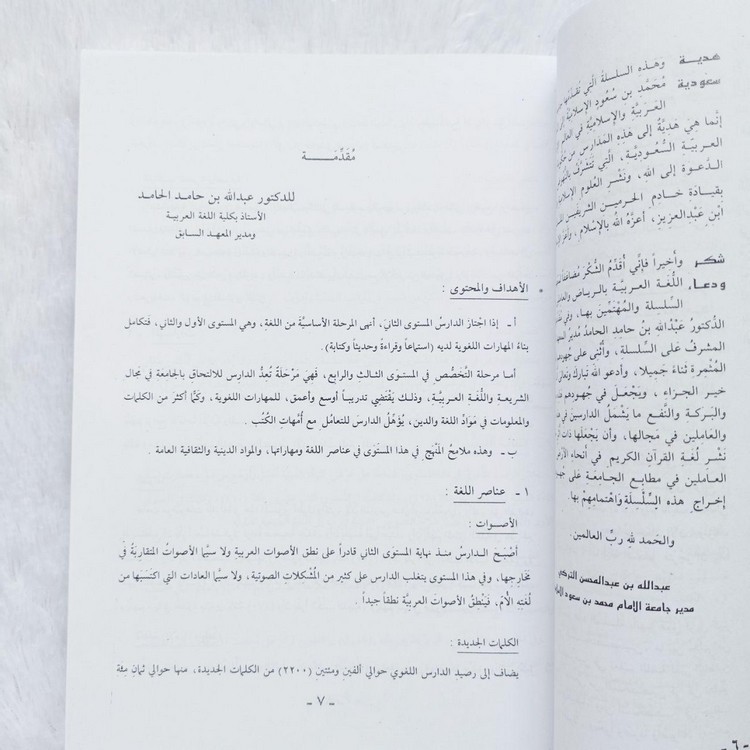 هديــة وَهذِهِ السلسلةُ الَّتِي
سعودية مُحَمَّدِ بن سُعُودٍ الإسلاميَّةِ
العَرَبيَّةِ والإسلاميَّةِ في العالم
إنَّما هي هَدِيَّةٌ إلى هَذِهِ المَدَارِسِ مِنْ
العَرَبيةِ السُّعوديَّة، الَّتي تَتَشَرَّفُ
الدَّعوةِ إلى الله، ونَشْرِ العُلومِ
بِقيادَةِ خادِمِ الحَرمينِ الشريفَينِ
ابْنِ عَبْدِالعزيز، أعزَّهُ الله بالإسْلام،
شكـر وأخيراً فإنَّنِي أُقدِّمُ الشُّكْرَ
ودعـاء اللُّغَةِ العربيَّةِ بالرياض
السِّلسلةِ والمُهتَمِّينَ بِها،
الدُّكتورَ عَبْدَاللهِ بنَ حامِدٍ الحامدَ مُديرَ
المشرفَ على السِّلسلةِ، وأُثْنى على
المُثْمِرةِ ثناءً جَميلا، وأدعو الله تباركَ وتَعالى
خير الجزاء، ويَجْعَلَ في جُهودهم
والبَرَكةِ والنَّفعِ ما يَشْمَلُ الدارسينَ
والعامِلينَ في مَجالِها، وأن يَجْعَلَها
نَشْرِ لُغَةِ القرآنِ الكريم في أنحاءِ
العامِلينَ في مطابِعِ الجامعَةِ على
إخراجِ هذه السِّلْسِلَةِ واهْتمامِهِمْ بها.
والحَمد للهِ ربِّ العالمين.
عبدالله بن عبدالمحسن التركي
مدير جامعة الإمام محمد بن سعود
مُقَدِّمَــــــة
للدكتور عبدالله بن حامد الحامد
الأستاذ بكلية اللغة العربية
ومدير المعهد السابق
• الأهداف والمحتوى :
أ ـ إذا اجْتازَ الدارسُ المستوى الثانيَ، أنهى المرحلة الأساسيَّة من اللغةِ، وهي المستوى الأول والثاني، فتكامل
بناءُ المهارات اللغوية لديه (استماعاً وقراءةً وحديثاً وكتابة).
أما مرحلة التَّخصُّصِ في المستوى الثالثِ والرابع، فَهِي مَرْحَلَةٌ تُعِدُّ الدارس للالتحاقِ بالجامعةِ في مجَالِ
الشريعةِ واللُّغَةِ العربيَّةِ، وذلك يَقْتَضِي تدريباً أوسعَ وأعمق، للمهارات اللغوية، وكَمًّا أكثرَ من الكلمات
والمعلوماتِ في مَوادِّ اللغة والدين، يُؤهِّلُ الدارسَ للتعامُلِ مع أُمَّهاتِ الكُتُب .
ب ـ وهذه ملامحُ المَنْهجِ في هذا المستوَى في عناصرِ اللغة ومهاراتِها، والمواد الدينية والثقافية العامة .
١ ـ عناصر اللغة :
الأصــوات :
أصْبَحَ الـدارسُ منـذ نهايةِ المستوى الثاني قادراً على نطق الأصوات العربيةِ ولا سيَّما الأصواتُ المتقاربَةُ في
مَخارجِها، وفي هذا المستوى يتغلب الدارس على كثير من المُشْكلاتِ الصوتية، ولا سيَّما العادات التي اكتسَبها من
لُغَتِهِ الأُمِّ، فَيَنْطِقُ الأصواتَ العربيَّةَ نطقاً جيداً .
الكلمات الجديدة :
يضاف إلى رصيدِ الدارس اللغوي حوالي ألفين ومئتين (٢٢٠٠) من الكلماتِ الجديدة، منها حوالي ثمانِ مِئَةِ
ـ ٧ ـ
ـ ٦ ـ